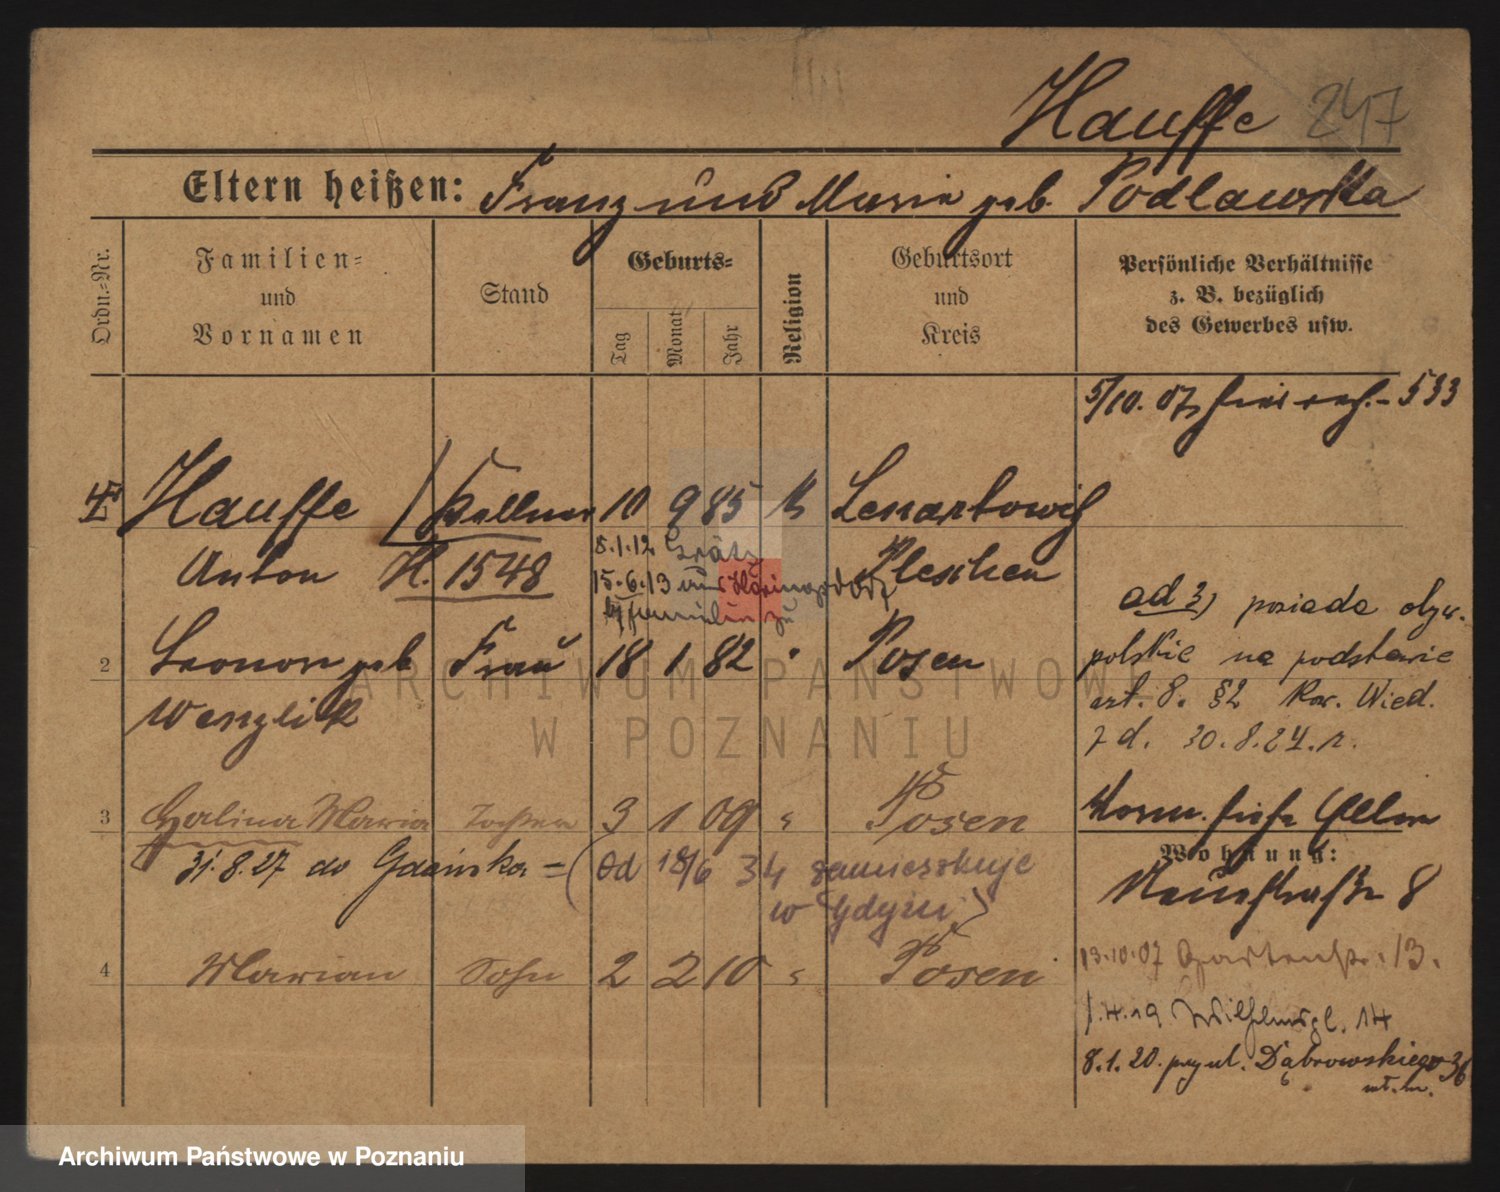 Hauffe 247
Eltern heißen: Franz und Maria geb. Podlawska
Ordn.-Nr.
Familien-
und
Vornamen
Stand
Geburts-
Tag
Monat
Jahr
Religion
Geburtsort
und
Kreis
Persönliche Verhältnisse
z. B. bezüglich
des Gewerbes usw.
5/10. 07 533
Hauffe Kellner 10 9 85 k Lenartowitz
Anton H. 1548 Pleschen
8.1.12 Grätz
15.6.13 aus
Familie zu
2 Leonore geb. Frau 18 1 82 " Posen
Wenzlik
ad 3) posiada obyw.
polskie na podstawie
art. 8. §2 Kow. Wied.
z d. 30.8.24. r.
3 Halina Maria Tochter 3 1 09 " Posen
31.8.27 do Gdańska = (od 18/6 34 zamieszkuje
w Gdyni)
4 Marian Sohn 2 2 10 " Posen
Wohnung:
Neuestraße 8
13.10.07 Gartenstr. 13.
1.4.19 Wilhelmspl. 14
8.1.20. przy ul. Dąbrowskiego 36
wł. m.
ARCHIWUM PAŃSTWOWE
W POZNANIU
Archiwum Państwowe w Poznaniu